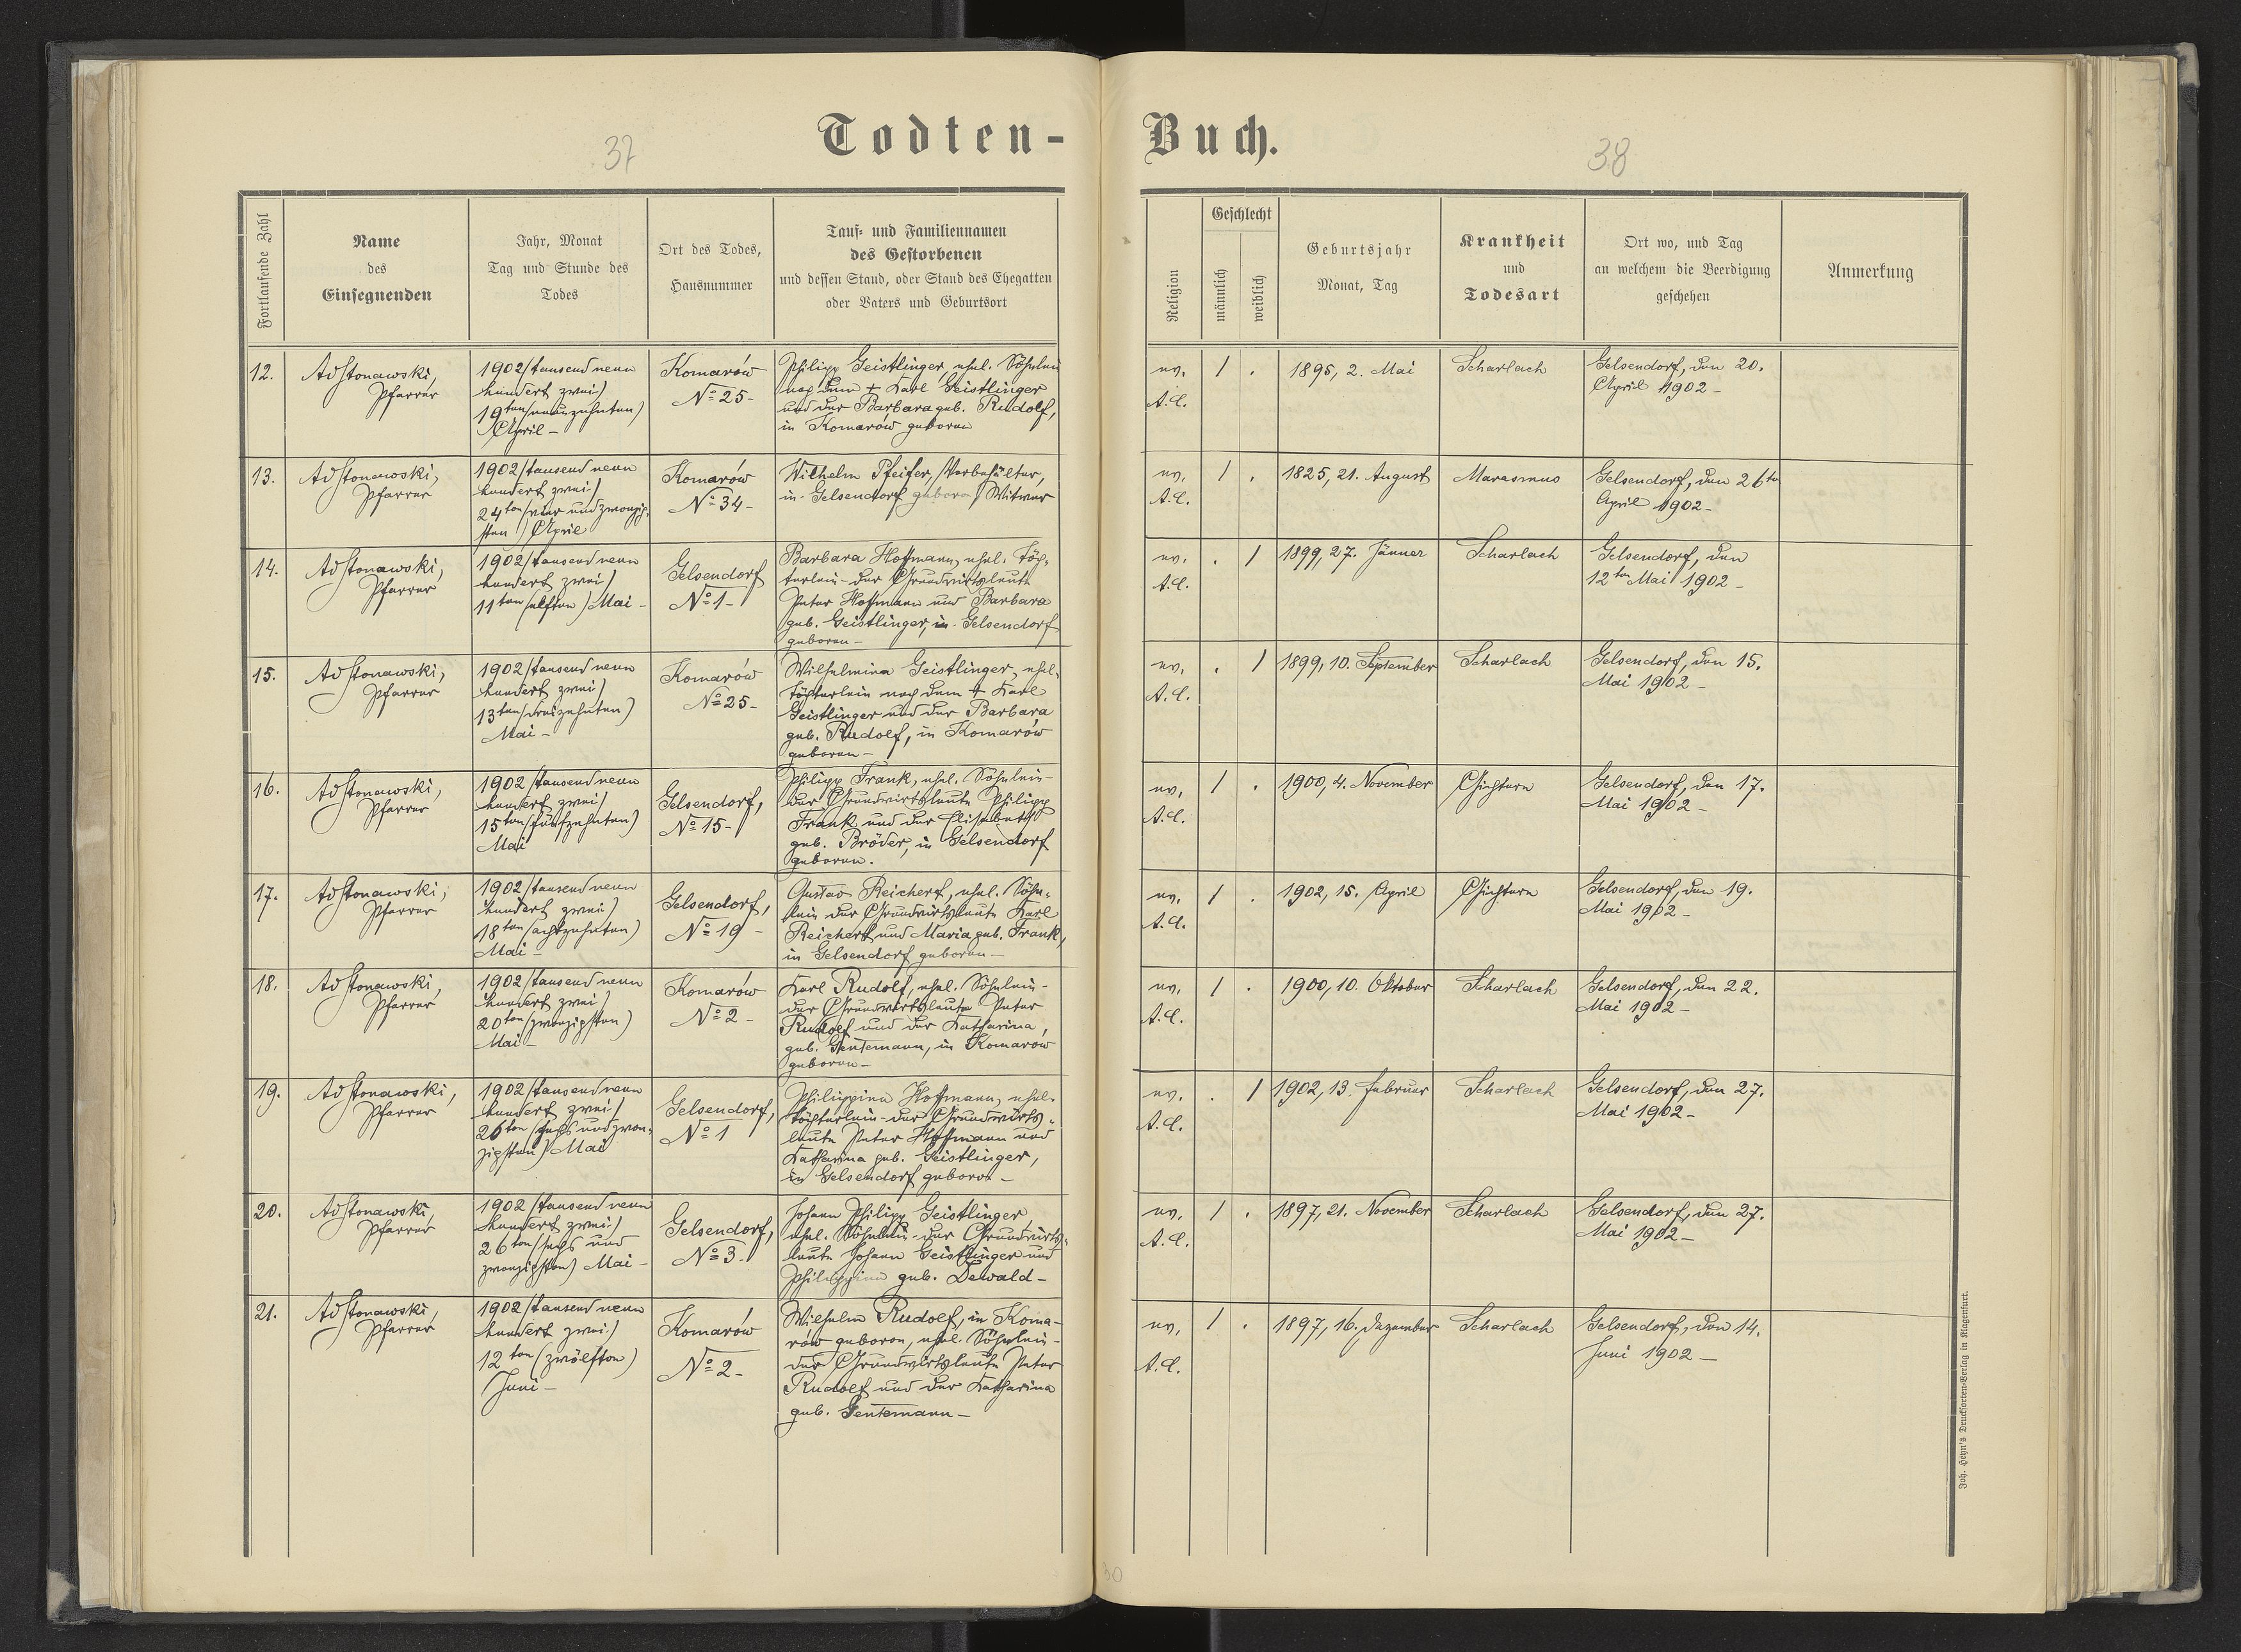 Todten-
Buch.
37
38
Fortlaufende Zahl
Name
des
Einsegnenden
Jahr, Monat
Tag und Stunde des
Todes
Ort des Todes,
Hausnummer
Tauf- und Familiennamen
des Gestorbenen
und dessen Stand, oder Stand des Ehegatten
oder Vaters und Geburtsort
Religion
Geschlecht
männlich
weiblich
Geburtsjahr
Monat, Tag
Krankheit
und
Todesart
Ort wo, und Tag
an welchem die Beerdigung
geschehen
Anmerkung
12.
Ad Stonawski,
Pfarrer
1902 (tausend neun
hundert zwei)
19ten (neunzehnten)
April –
Komarów
No 25 –
Philipp Geistlinger, ehel. Söhnlein
nach dem + Karl Geistlinger
und der Barbara geb. Rudolf,
in Komarów geboren
ev.
A.C.
1 .
1895, 2. Mai
Scharlach
Gelsendorf, den 20.
April 1902 –
13.
Ad Stonawski,
Pfarrer
1902 (tausend neun
hundert zwei)
24ten (vier und zwanzig-
sten) April
Komarów
No 34 –
Wilhelm Pfeifer, Vorbehälter,
in Gelsendorf geboren, Witwer
ev.
A.C.
1 .
1825, 21. August
Marasmus
Gelsendorf, den 26ten
April 1902 –
14.
Ad Stonawski,
Pfarrer
1902 (tausend neun
hundert zwei)
11ten (elften) Mai –
Gelsendorf
No 1 –
Barbara Hoffmann, ehel. Töch-
terlein der Grundwirtsleute
Peter Hoffmann und Barbara
geb. Geistlinger, in Gelsendorf
geboren –
ev.
A.C.
. 1
1899, 27. Jänner
Scharlach
Gelsendorf, den
12ten Mai 1902 –
15.
Ad Stonawski,
Pfarrer
1902 (tausend neun
hundert zwei)
13ten (dreizehnten)
Mai –
Komarów
No 25 –
Wilhelmina Geistlinger, ehel.
Töchterlein nach dem + Karl
Geistlinger und der Barbara
geb. Rudolf, in Komarów
geboren –
ev.
A.C.
. 1
1899, 10. September
Scharlach
Gelsendorf, den 15.
Mai 1902 –
16.
Ad Stonawski,
Pfarrer
1902 (tausend neun
hundert zwei)
15ten (fünfzehnten)
Mai
Gelsendorf,
No 15 –
Philipp Frank, ehel. Söhnlein
der Grundwirtsleute Philipp
Frank und der Elisabeth
geb. Bröder, in Gelsendorf
geboren.
ev.
A.C.
1 .
1900, 4. November
Gichtern
Gelsendorf, den 17.
Mai 1902 –
17.
Ad Stonawski,
Pfarrer
1902 (tausend neun
hundert zwei)
18ten (achtzehnten)
Mai –
Gelsendorf,
No 19 –
Gustav Reichert, ehel. Söhn-
lein der Grundwirtsleute Karl
Reichert und Maria geb. Frank,
in Gelsendorf geboren –
ev.
A.C.
1 .
1902, 15. April
Gichtern
Gelsendorf, den 19.
Mai 1902 –
18.
Ad Stonawski,
Pfarrer
1902 (tausend neun
hundert zwei)
20ten (zwanzigsten)
Mai –
Komarów
No 2 –
Karl Rudolf, ehel. Söhnlein
der Grundwirtsleute Peter
Rudolf und der Katharina,
geb. Gentemann, in Komarow
geboren –
ev.
A.C.
1 .
1900, 10. Oktober
Scharlach
Gelsendorf, den 22.
Mai 1902 –
19.
Ad Stonawski,
Pfarrer
1902 (tausend neun
hundert zwei)
26ten (sechs und zwan-
zigsten) Mai
Gelsendorf,
No 1
Philippina Hoffmann, ehel.
Töchterlein der Grundwirts-
leute Peter Hoffmann und
Katharina geb. Geistlinger,
in Gelsendorf geboren –
ev.
A.C.
. 1
1902, 13. Februar
Scharlach
Gelsendorf, den 27.
Mai 1902 –
20.
Ad Stonawski,
Pfarrer
1902 (tausend neun
hundert zwei)
26ten (sechs und
zwanzigsten) Mai –
Gelsendorf,
No 3 –
Johann Philipp Geistlinger
ehel. Söhnlein der Grundwirts-
leute Johann Geistlinger und
Philippina geb. Dewald –
ev.
A.C.
1 .
1897, 21. November
Scharlach
Gelsendorf, den 27.
Mai 1902 –
21.
Ad Stonawski,
Pfarrer
1902 (tausend neun
hundert zwei)
12ten (zwölften)
Juni –
Komarów
No 2 –
Wilhelm Rudolf, in Koma-
rów geboren, ehel. Söhnlein
der Grundwirtsleute Peter
Rudolf und der Katharina
geb. Gentemann –
ev.
A.C.
1 .
1897, 16. Dezember
Scharlach
Gelsendorf, den 14.
Juni 1902 –
Joh. Heyn's Drucksorten-Verlag in Klagenfurt.